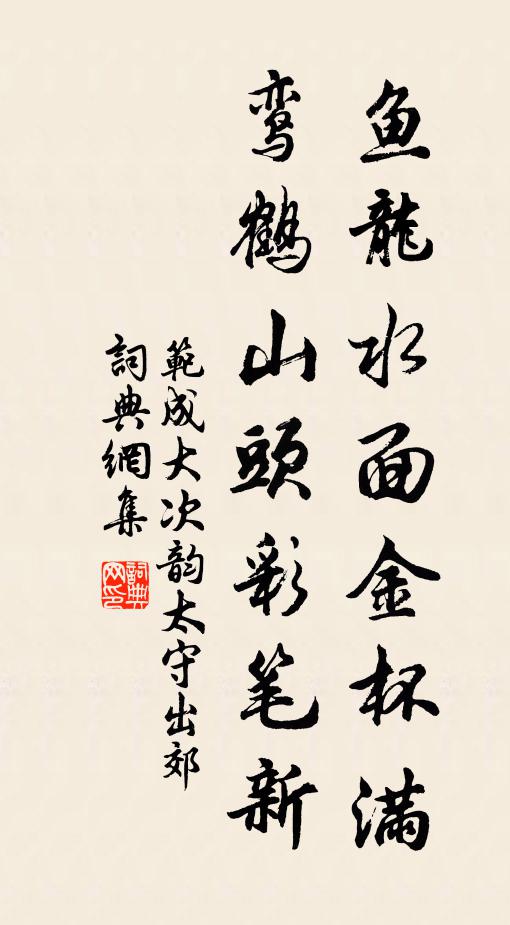 鱼龍水面金杯满
鸾鶴山頭彩笔新
範成大次韵太守出郊
詞典網集
詞典网印